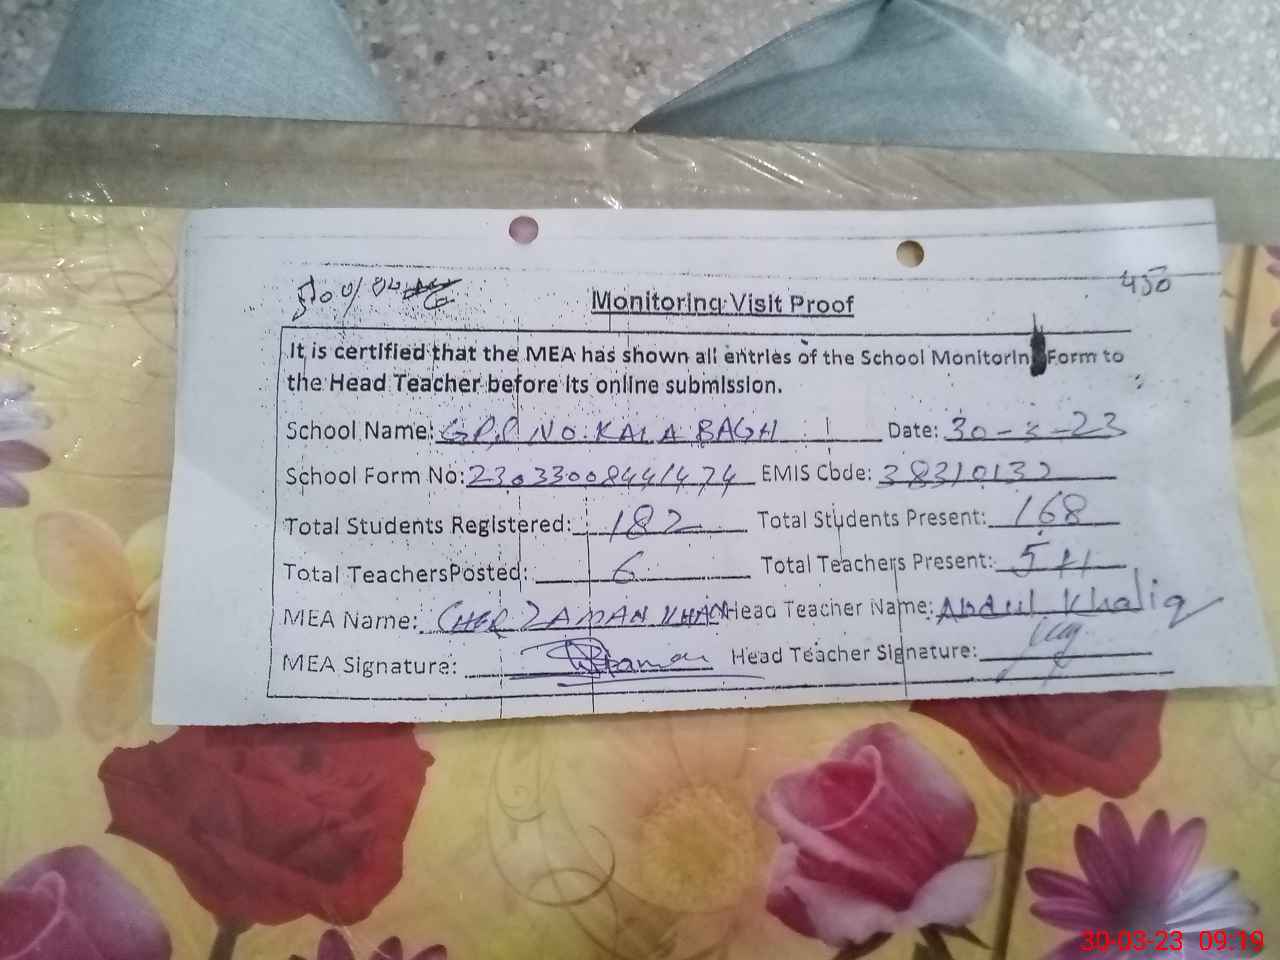 450
Monitoring Visit Proof
It is certified that the MEA has shown all entries of the School Monitorin Form to
the Head Teacher before its online submission.
School Name: GPS NO. KALA BAGH Date: 30-3-23
School Form No: 23033008441474 EMIS Code: 38310132
Total Students Registered: 182 Total Students Present: 168
Total TeachersPosted: 6 Total Teachers Present: 5
MEA Name: SHER ZAMAN KHAN Head Teacher Name: Abdul Khaliq
MEA Signature: Head Teacher Signature:
30-03-23 09:19